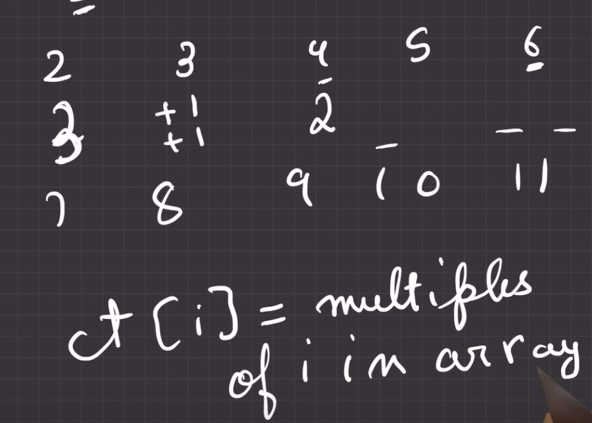 2 3 4 5 6
3 +1 2
+1
7 8 9 10 11
ct[i] = multiples
of i in array